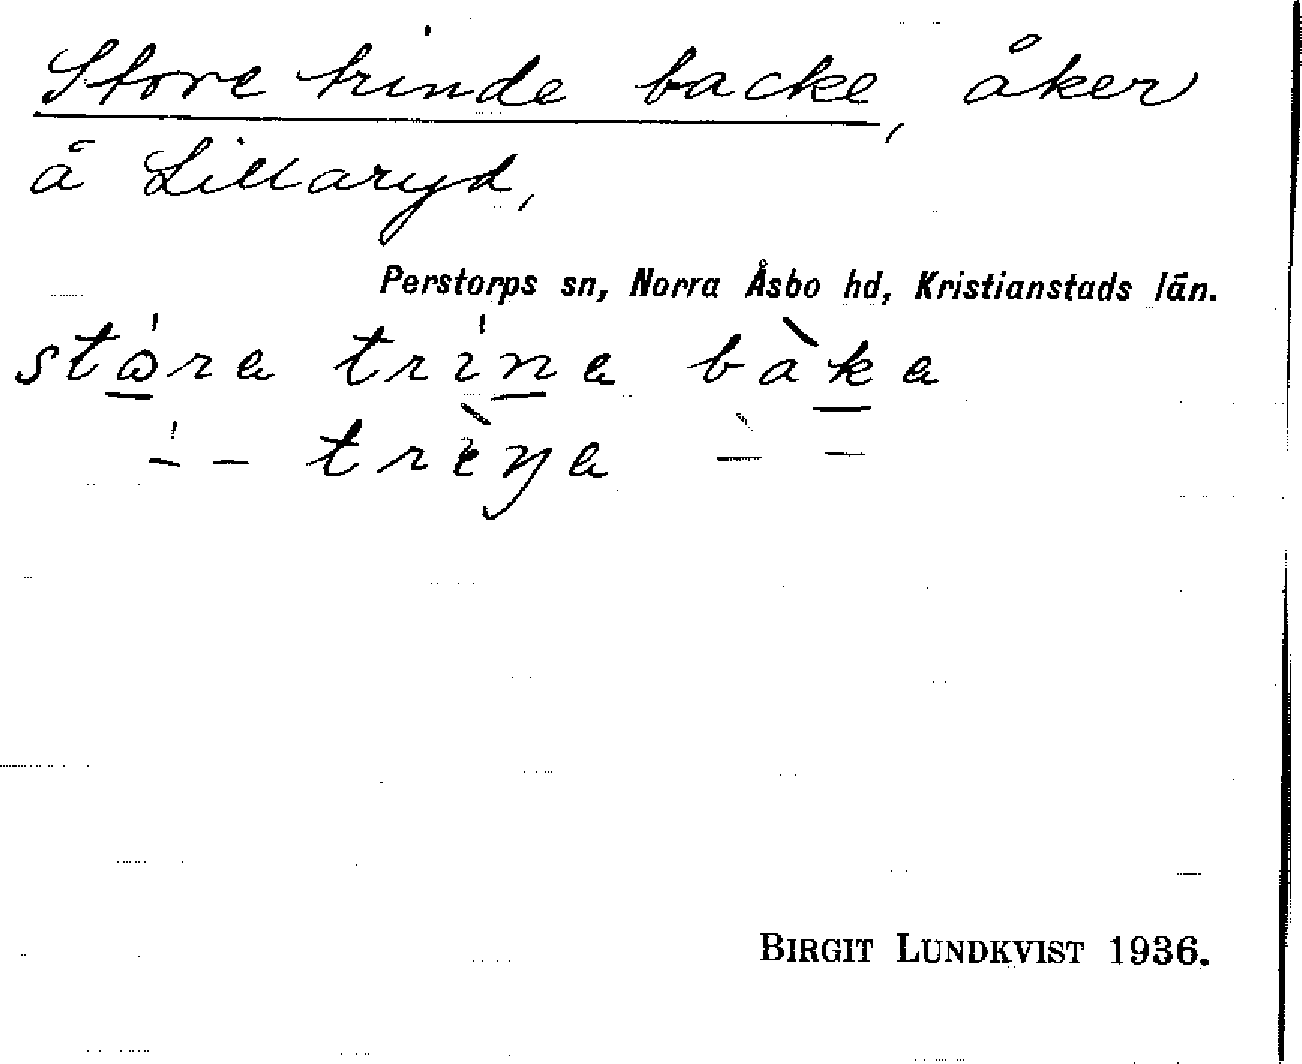 Store trinde backe, åker
å Lillaryd,
Perstorps sn, Norra Åsbo hd, Kristianstads län.
stóra trína bàka
–́ – trèŋa –̀ –
BIRGIT LUNDKVIST 1936.